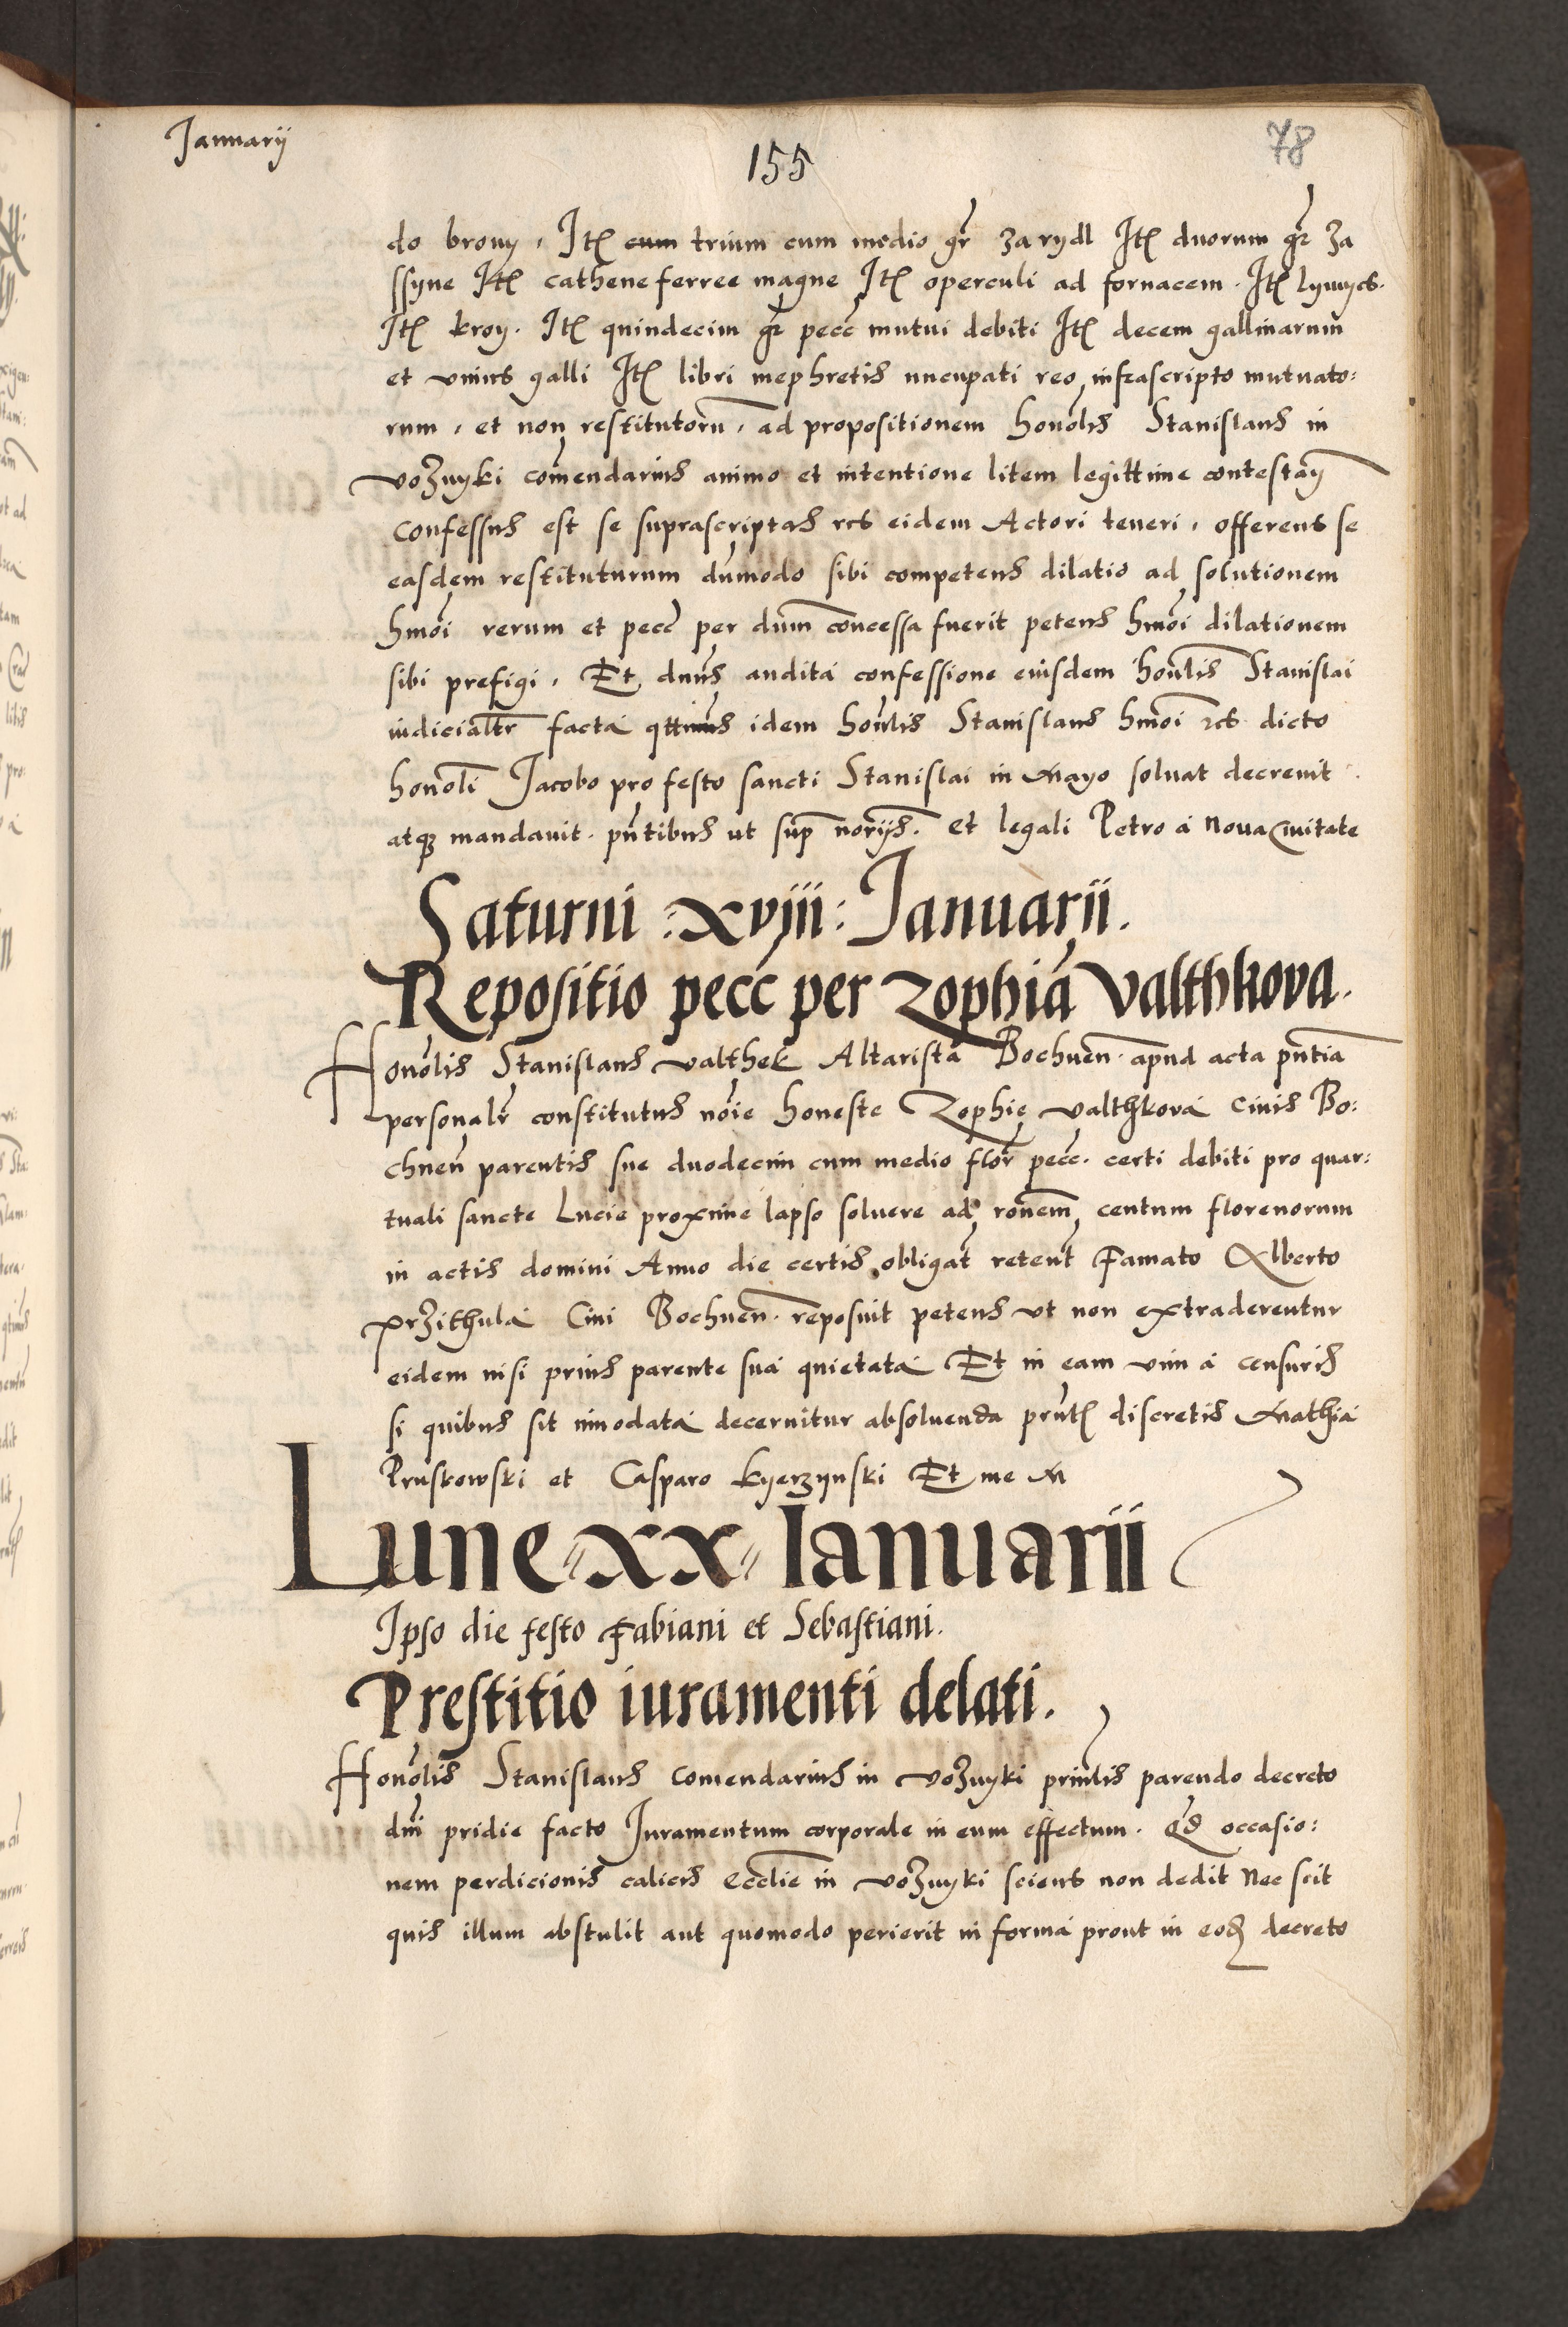 Januarij
155
78
do brony, Itꝫ cum trium cum medio gr̃ za rydl Itꝫ duorum gr̃ za
ssyne Itꝫ cathene ferree magne Itꝫ operculi ad fornacem. Itꝫ lymycs.
Itꝫ kroy. Itꝫ quindecim gr̃ pecc̃ mutui debiti Itꝫ decem gallinarum
et vnius galli Itꝫ libri mephretis nucupati reo infrascripto mutuato:
rum, et non restitutorũ, ad propositionem honolis Stanislaus in
voznyki com̃endarius animo et intentione litem legittime contestañ
confessus est se suprascriptas res eidem Actori teneri, offerens se
easdem restituturum dũmodo sibi competens dilatio ad solutionem
hmõi rerum et pecc̃ per dum̃ concessa fuerit petens hmõi dilationem
sibi prefigi, Et dnus̃ audita confessione eiusdem honoľis Stanislai
iudicialtr̃ facta qttinus idem honoľis Stanislaus hmõi res dicto
honoli Jacobo pro festo sancti Stanislai in Mayo soluat decreuit
atqꝫ mandauit. pñtibus ut sup̃ norijs̃. et legali Petro a Noua Ciuitate
Saturni :xviii: Januarii.
Repositio pecc̃ per Zophiã Valthkova.
Honoľis Stanislaus valthek Altarista Bochneñ. apud acta pñtia
personaľr constitutus nõie honeste Zophie valthkova Ciuis Bo:
chneñ parentis sue duodecim cum medio flor̃ pecc̃. certi debiti pro quar:
tuali sancte Lucie proxime lapso soluere ad ronem̃ centum florenorum
in actis domini Anno die certis obligat̃ retent̃ Famato Alberto
przithula Ciui Bochneñ. reposuit petens vt non extraderentur
eidem nisi prius parente sua quietata Et in eam vim a censuris
si quibus sit innodata decernitur absoluenda prñtꝫ discretis Mathia
Pruskowski et Casparo kyerzynski Et me M
Lune xx Ianuarii
Ipso die festo Fabiani et Sebastiani.
Prestitio iuramenti delati.
Honoľis Stanislaus comendarius in voznyki prin̄lis parendo decreto
dñi pridie facto Juramentum corporale in eum effectum. qd̃ occasio:
nem perdicionis calicis eccľie in voznyki sciens non dedit Nec scit
quis illum abstulit aut quomodo perierit in forma prout in eodꝫ decreto